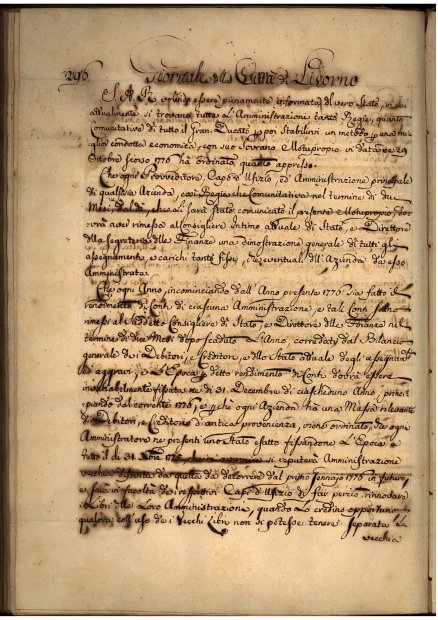 296 Giornale della Città di Livorno
S. A. R. volendo essere pienamente informata del vero Stato, in cui
attualmente si trovano tutte le Amministrazioni tanto Regie, quanto
Comunitative di tutto il Gran Ducato, e poi stabilirvi un metodo, e una mi=
glior condotta economica, con suo Sovrano Motuproprio in data de 29
Ottobre scorso 1776 ha ordinato quanto appresso.
Che ogni Provveditore, Capo d'Ufizio, ed Amministrazione principale
di qualsivia Azienda, così Regie che Comunitative nel termine di due
Mesi, dal dì, che li sarà stato comunicato il presente Motuproprio, dov=
rà aver rimessa al Consigliere Intimo attuale di Stato, e Direttore
della Segreteria delle Finanze una dimostrazione generale di tutti gli
assegnamenti, e carichi tanto fissi, che eventuali dell'Azienda da esso
Amministrata.
Che ogni Anno, incominciando dall'Anno presente 1776 sia fatto il
rendimento de Conti di ciascuna Amministrazione, e tali Conti siano
rimessi al suddetto Consigliere di Stato, e Direttore delle Finanze nel
termine di due Mesi dopo scaduto l'Anno, corredati dal Bilancio
generale dei Debitori, e Creditori, e dello Stato attuale degli assegnamti
ed aggravi, e l'Epoca di detto rendimento di Conti dovrà essere
invariabilmente fissata ne dì 31. Decembre di ciaschedun Anno, princi=
piando dal corrente 1776, e perchè ogni Azienda ha una Massa rilevante
di Debitori, e Creditori d'antica provenienza, viene ordinato, che ogni
Amministratore ne presenti uno Stato esatto fissandone l'Epoca a
tutto il dì 31. Xbre 1775. si reputerà Amministrazione
vecchia distinta da quella da decorrere dal primo Gennajo 1776 in futuro,
e sarà in facoltà dei respettivi Capi d'Ufizio di far perciò rinnovare
i Libri alle Loro Amministrazione, quando Lo credino opportuno
qualora coll'uso dei Vecchi Libri non si potesse tenere separata La
vecchia